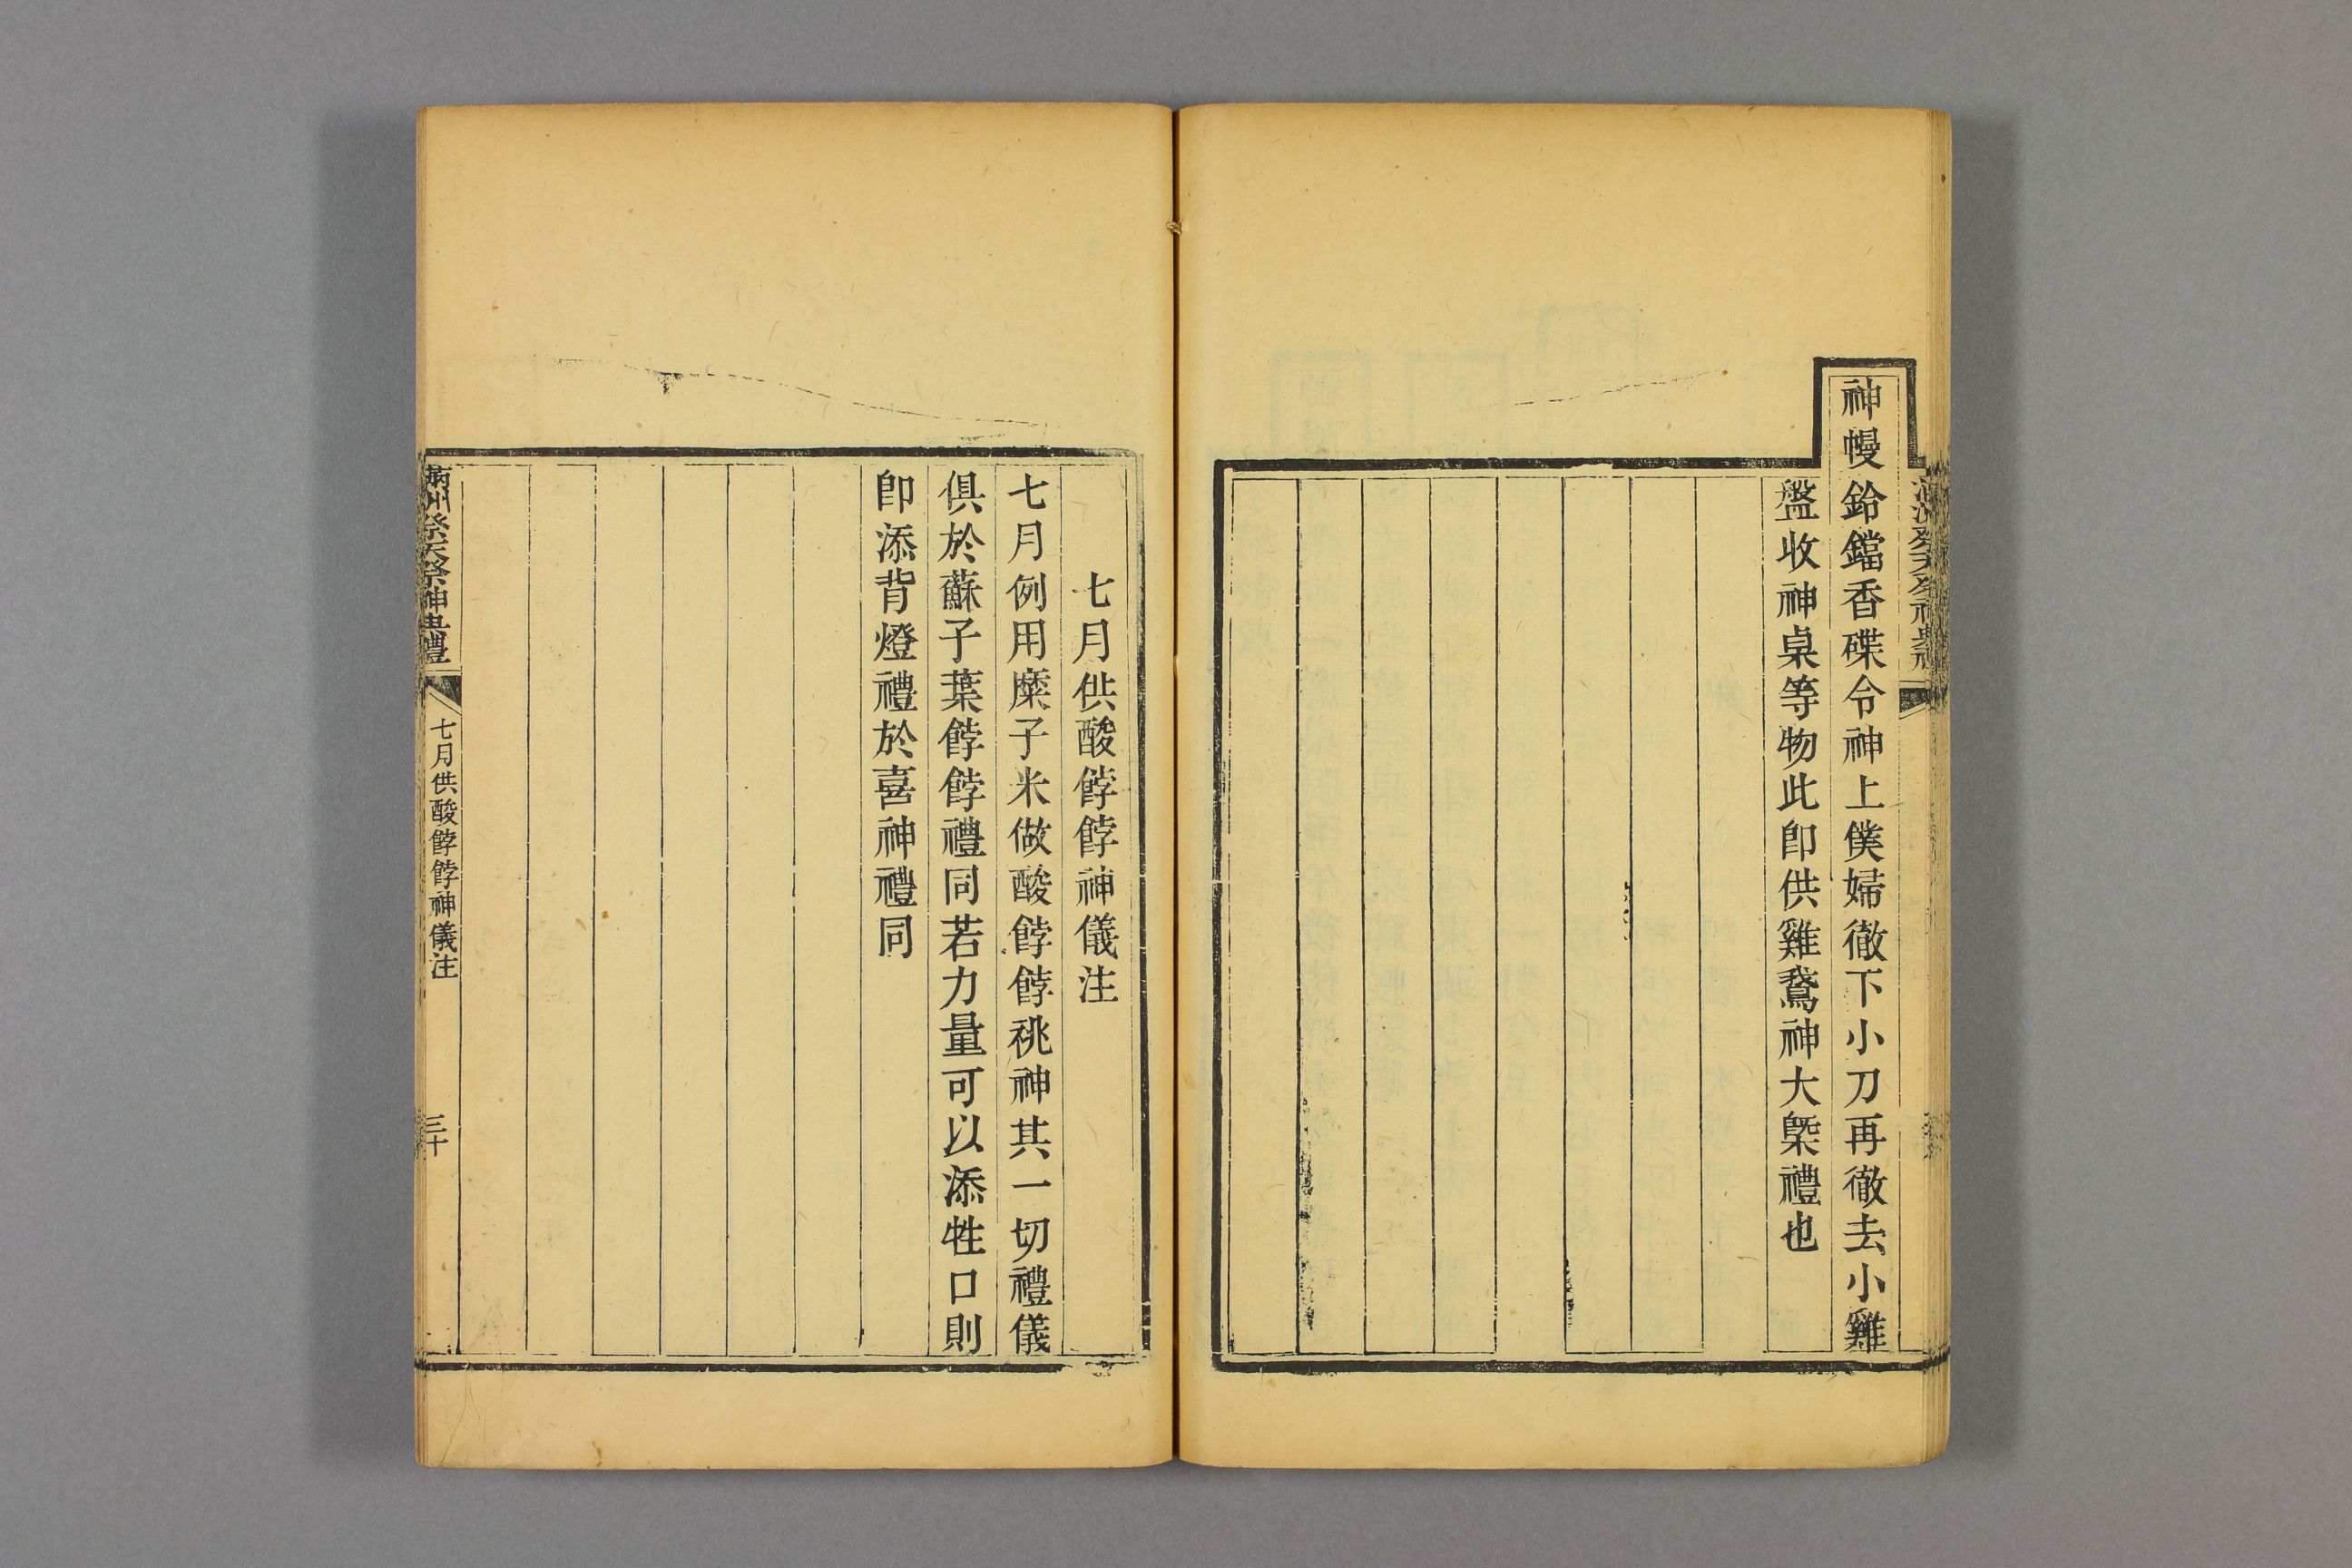 神幔鈴鐺香碟令神上僕婦徹下小刀再徹去小雞
盤收神桌等物此卽供雞鵞神大槩禮也
七月供酸餑餑神儀注
七月例用糜子米做酸餑餑祧神其一切禮儀
俱於蘇子葉餑餑禮同若力量可以添牲口則
卽添背燈禮於喜神禮同
滿州祭天祭神典禮
七月供酸餑餑神儀注
三十